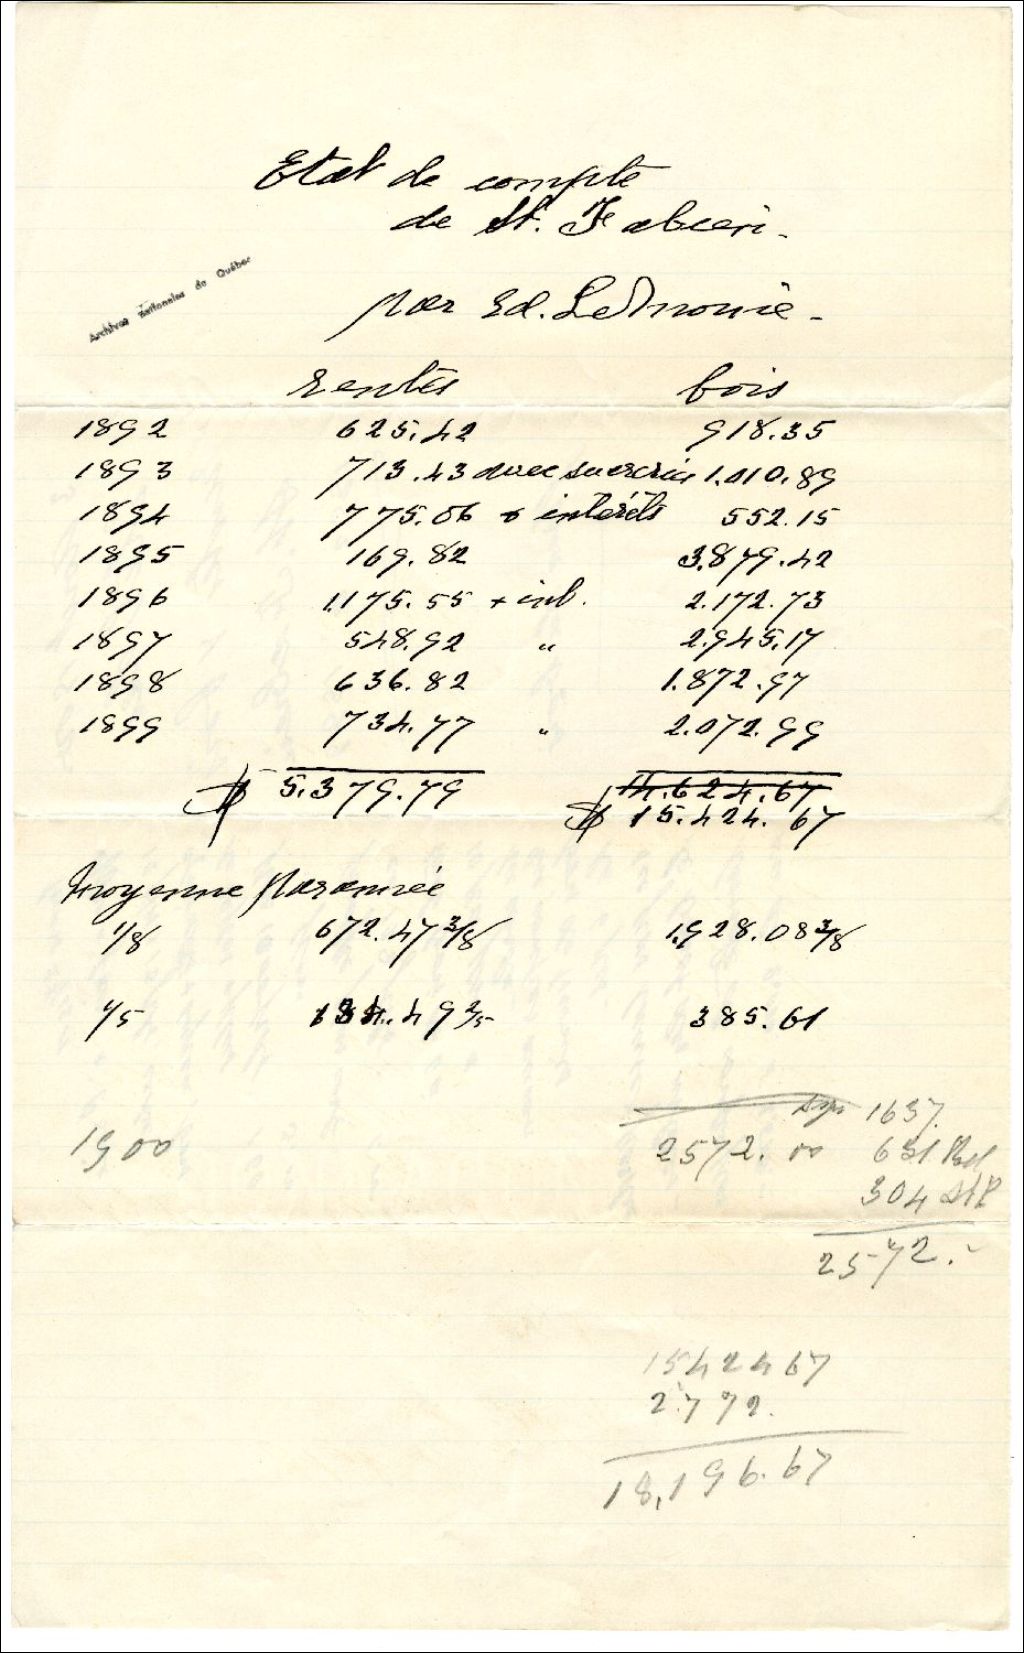 Etat de compte
de St. Fabien.
Archives Nationales du Québec
par Ed. LeMoine.
rentes bois
1892 625.42 918.35
1893 713.43 avec sucrerie 1.010.89
1894 775.06 & intérêts 552.15
1895 169.82 3.879.42
1896 1.175.55 + int. 2.172.73
1897 548.92 " 2.945.17
1898 636.82 1.872.97
1899 734.77 " 2.072.99
$ 5.379.79 14.624.67
$ 15.424.67
Moyenne par année
1/8 672.47 3/8 1.928.08 3/8
1/5 134.49 2/5 385.61
1637.
1900 2572.00 631
304
2572.-
1542467
2.772.
18,196.67